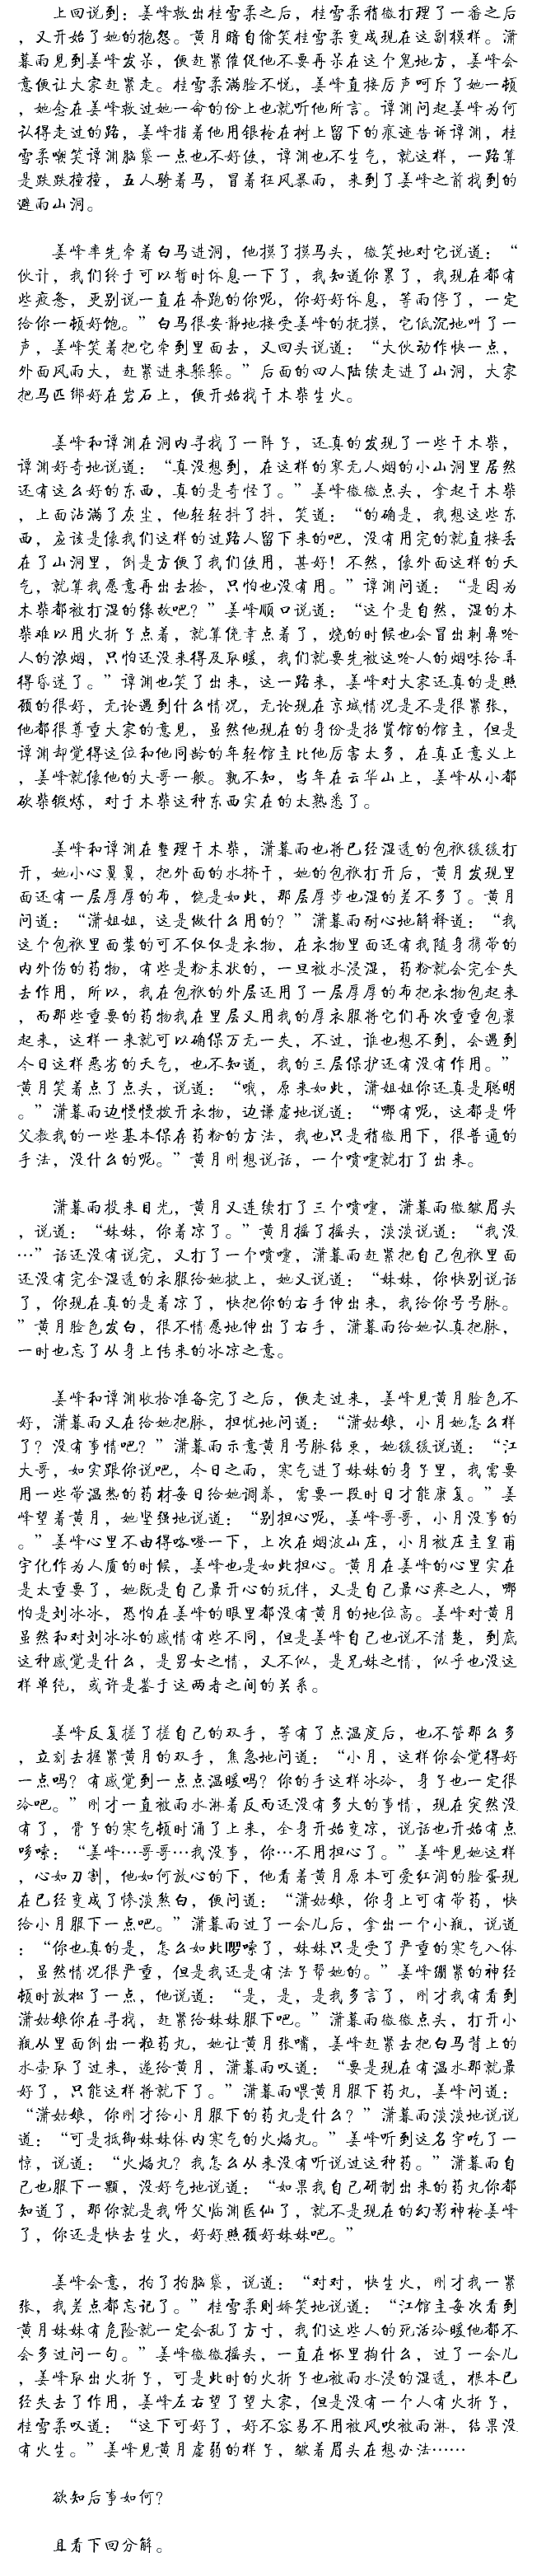 上回说到：姜峰救出桂雪柔之后，桂雪柔稍微打理了一番之后
，又开始了她的抱怨。黄月暗自偷笑桂雪柔变成现在这副模样。潇
暮雨见到姜峰发呆，便赶紧催促他不要再呆在这个鬼地方，姜峰会
意便让大家赶紧走。桂雪柔满脸不悦，姜峰直接厉声呵斥了她一顿
，她念在姜峰救过她一命的份上也就听他所言。谭渊问起姜峰为何
认得走过的路，姜峰指着他用银枪在树上留下的痕迹告诉谭渊，桂
雪柔嘲笑谭渊脑袋一点也不好使，谭渊也不生气，就这样，一路算
是跌跌撞撞，五人骑着马，冒着狂风暴雨，来到了姜峰之前找到的
避雨山洞。
姜峰率先牵着白马进洞，他摸了摸马头，微笑地对它说道：“
伙计，我们终于可以暂时休息一下了，我知道你累了，我现在都有
些疲惫，更别说一直在奔跑的你呢，你好好休息，等雨停了，一定
给你一顿好饱。”白马很安静地接受姜峰的抚摸，它低沉地叫了一
声，姜峰笑着把它牵到里面去，又回头说道：“大伙动作快一点，
外面风雨大，赶紧进来躲躲。”后面的四人陆续走进了山洞，大家
把马匹绑好在岩石上，便开始找干木柴生火。
姜峰和谭渊在洞内寻找了一阵子，还真的发现了一些干木柴，
谭渊好奇地说道：“真没想到，在这样的寥无人烟的小山洞里居然
还有这么好的东西，真的是奇怪了。”姜峰微微点头，拿起干木柴
，上面沾满了灰尘，他轻轻抖了抖，笑道：“的确是，我想这些东
西，应该是像我们这样的过路人留下来的吧，没有用完的就直接丢
在了山洞里，倒是方便了我们使用，甚好！不然，像外面这样的天
气，就算我愿意再出去捡，只怕也没有用。”谭渊问道：“是因为
木柴都被打湿的缘故吧？”姜峰顺口说道：“这个是自然，湿的木
柴难以用火折子点着，就算侥幸点着了，烧的时候也会冒出刺鼻呛
人的浓烟，只怕还没来得及取暖，我们就要先被这呛人的烟味给弄
得昏迷了。”谭渊也笑了出来，这一路来，姜峰对大家还真的是照
顾的很好，无论遇到什么情况，无论现在京城情况是不是很紧张，
他都很尊重大家的意见，虽然他现在的身份是招贤馆的馆主，但是
谭渊却觉得这位和他同龄的年轻馆主比他厉害太多，在真正意义上
，姜峰就像他的大哥一般。孰不知，当年在云华山上，姜峰从小都
砍柴锻炼，对于木柴这种东西实在的太熟悉了。
姜峰和谭渊在整理干木柴，潇暮雨也将已经湿透的包袱缓缓打
开，她小心翼翼，把外面的水挤干，她的包袱打开后，黄月发现里
面还有一层厚厚的布，饶是如此，那层厚步也湿的差不多了。黄月
问道：“潇姐姐，这是做什么用的？”潇暮雨耐心地解释道：“我
这个包袱里面装的可不仅仅是衣物，在衣物里面还有我随身携带的
内外伤的药物，有些是粉末状的，一旦被水浸湿，药粉就会完全失
去作用，所以，我在包袱的外层还用了一层厚厚的布把衣物包起来
，而那些重要的药物我在里层又用我的厚衣服将它们再次重重包裹
起来，这样一来就可以确保万无一失，不过，谁也想不到，会遇到
今日这样恶劣的天气，也不知道，我的三层保护还有没有作用。”
黄月笑着点了点头，说道：“哦，原来如此，潇姐姐你还真是聪明
。”潇暮雨边慢慢拨开衣物，边谦虚地说道：“哪有呢，这都是师
父教我的一些基本保存药粉的方法，我也只是稍微用下，很普通的
手法，没什么的呢。”黄月刚想说话，一个喷嚏就打了出来。
潇暮雨投来目光，黄月又连续打了三个喷嚏，潇暮雨微皱眉头
，说道：“妹妹，你着凉了。”黄月摇了摇头，淡淡说道：“我没
…”话还没有说完，又打了一个喷嚏，潇暮雨赶紧把自己包袱里面
还没有完全湿透的衣服给她披上，她又说道：“妹妹，你快别说话
了，你现在真的是着凉了，快把你的右手伸出来，我给你号号脉。
”黄月脸色发白，很不情愿地伸出了右手，潇暮雨给她认真把脉，
一时也忘了从身上传来的冰凉之意。
姜峰和谭渊收拾准备完了之后，便走过来，姜峰见黄月脸色不
好，潇暮雨又在给她把脉，担忧地问道：“潇姑娘，小月她怎么样
了？没有事情吧？”潇暮雨示意黄月号脉结束，她缓缓说道：“江
大哥，如实跟你说吧，今日之雨，寒气进了妹妹的身子里，我需要
用一些带温热的药材每日给她调养，需要一段时日才能康复。”姜
峰望着黄月，她坚强地说道：“别担心呢，姜峰哥哥，小月没事的
。”姜峰心里不由得咯噔一下，上次在烟波山庄，小月被庄主皇甫
宇化作为人质的时候，姜峰也是如此担心。黄月在姜峰的心里实在
是太重要了，她既是自己最开心的玩伴，又是自己最心疼之人，哪
怕是刘冰冰，恐怕在姜峰的眼里都没有黄月的地位高。姜峰对黄月
虽然和对刘冰冰的感情有些不同，但是姜峰自己也说不清楚，到底
这种感觉是什么，是男女之情，又不似，是兄妹之情，似乎也没这
样单纯，或许是鉴于这两者之间的关系。
姜峰反复搓了搓自己的双手，等有了点温度后，也不管那么多
，立刻去握紧黄月的双手，焦急地问道：“小月，这样你会觉得好
一点吗？有感觉到一点点温暖吗？你的手这样冰冷，身子也一定很
冷吧。”刚才一直被雨水淋着反而还没有多大的事情，现在突然没
有了，骨子的寒气顿时涌了上来，全身开始变凉，说话也开始有点
哆嗦：“姜峰…哥哥…我没事，你…不用担心了。”姜峰见她这样
，心如刀割，他如何放心的下，他看着黄月原本可爱红润的脸蛋现
在已经变成了惨淡煞白，便问道：“潇姑娘，你身上可有带药，快
给小月服下一点吧。”潇暮雨过了一会儿后，拿出一个小瓶，说道
：“你也真的是，怎么如此啰嗦了，妹妹只是受了严重的寒气入体
，虽然情况很严重，但是我还是有法子帮她的。”姜峰绷紧的神经
顿时放松了一点，他说道：“是，是，是我多言了，刚才我有看到
潇姑娘你在寻找，赶紧给妹妹服下吧。”潇暮雨微微点头，打开小
瓶从里面倒出一粒药丸，她让黄月张嘴，姜峰赶紧去把白马背上的
水壶取了过来，递给黄月，潇暮雨叹道：“要是现在有温水那就最
好了，只能这样将就下了。”潇暮雨喂黄月服下药丸，姜峰问道：
“潇姑娘，你刚才给小月服下的药丸是什么？”潇暮雨淡淡地说说
道：“可是抵御妹妹体内寒气的火焰丸。”姜峰听到这名字吃了一
惊，说道：“火焰丸？我怎么从来没有听说过这种药。”潇暮雨自
己也服下一颗，没好气地说道：“如果我自己研制出来的药丸你都
知道了，那你就是我师父临渊医仙了，就不是现在的幻影神枪姜峰
了，你还是快去生火，好好照顾好妹妹吧。”
姜峰会意，拍了拍脑袋，说道：“对对，快生火，刚才我一紧
张，我差点都忘记了。”桂雪柔则娇笑地说道：“江馆主每次看到
黄月妹妹有危险就一定会乱了方寸，我们这些人的死活冷暖他都不
会多过问一句。”姜峰微微摇头，一直在怀里掏什么，过了一会儿
，姜峰取出火折子，可是此时的火折子也被雨水浸的湿透，根本已
经失去了作用，姜峰左右望了望大家，但是没有一个人有火折子，
桂雪柔叹道：“这下可好了，好不容易不用被风吹被雨淋，结果没
有火生。”姜峰见黄月虚弱的样子，皱着眉头在想办法……
欲知后事如何？
且看下回分解。